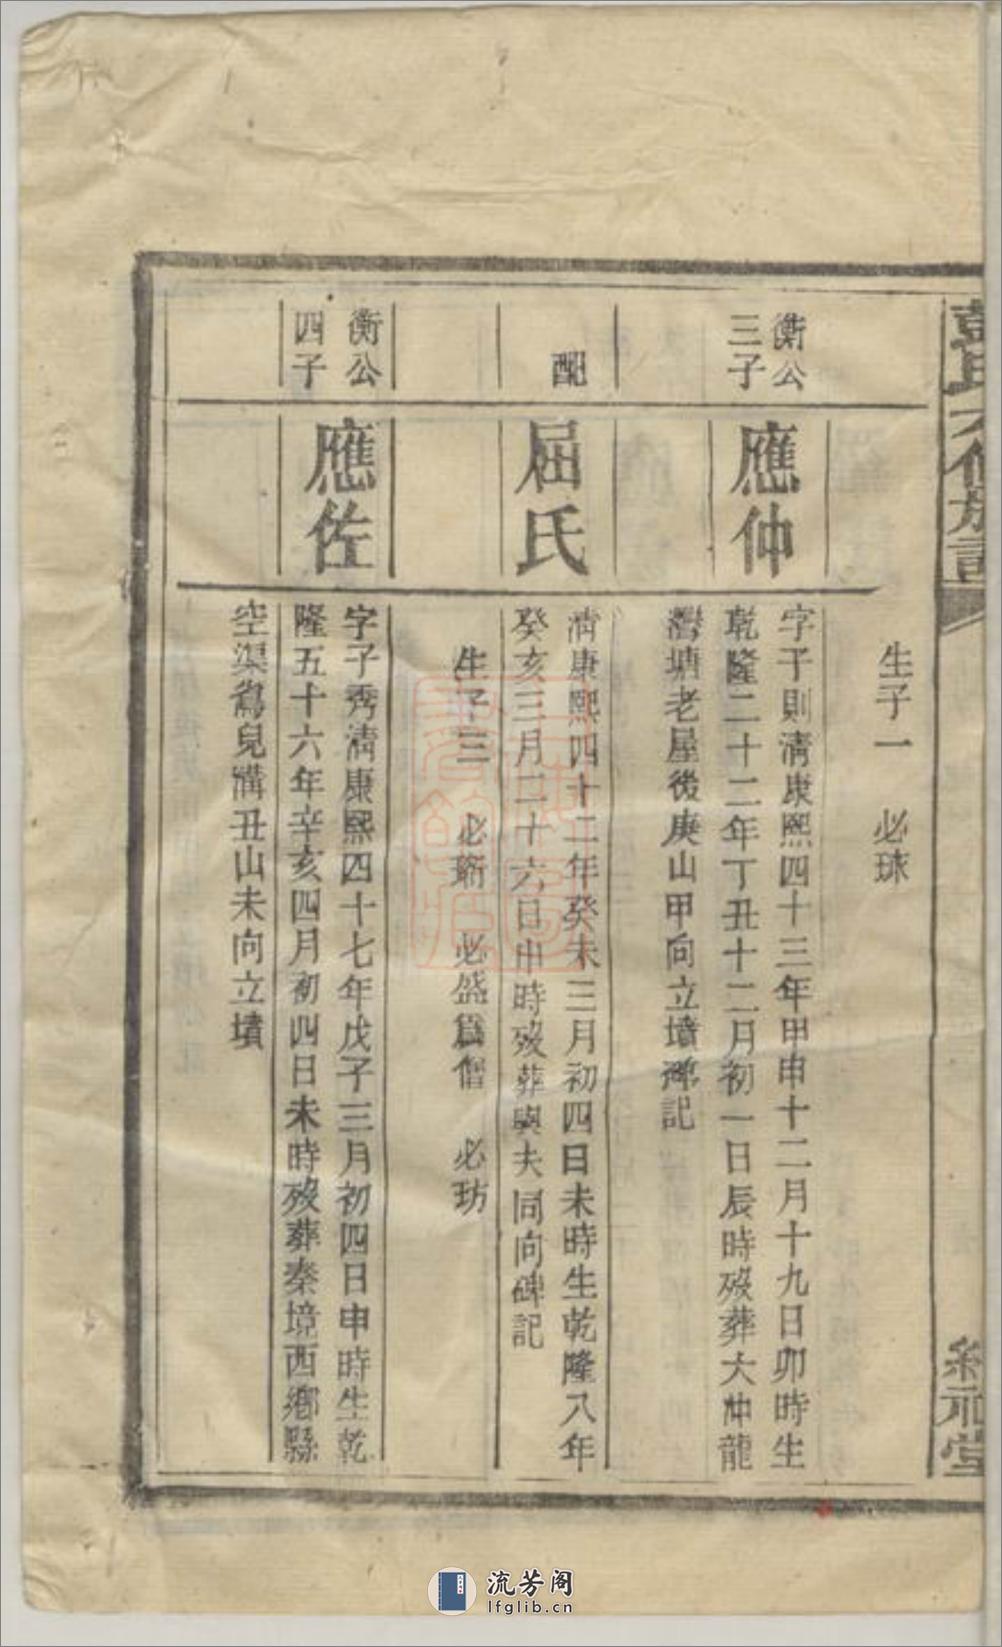 彭氏六修族譜
生子一　必球
衡公
三子
應仲
字子則清康熙四十三年甲申十二月十九日卯時生
乾隆二十二年丁丑十二月初一日辰時歿葬大冲龍
灣塘老屋後庚山甲向立墳碑記
配
屈氏
清康熙四十二年癸未三月初四日未時生乾隆八年
癸亥三月二十六日申時歿葬與夫同向碑記
生子三　必簕　必盛爲僧　必玏
衡公
四子
應佐
字子秀清康熙四十七年戊子三月初四日申時生乾
隆五十六年辛亥四月初四日未時歿葬秦境西鄉縣
空渠鴛兒溝丑山未向立墳
元堂
流芳阁
lfglib.cn